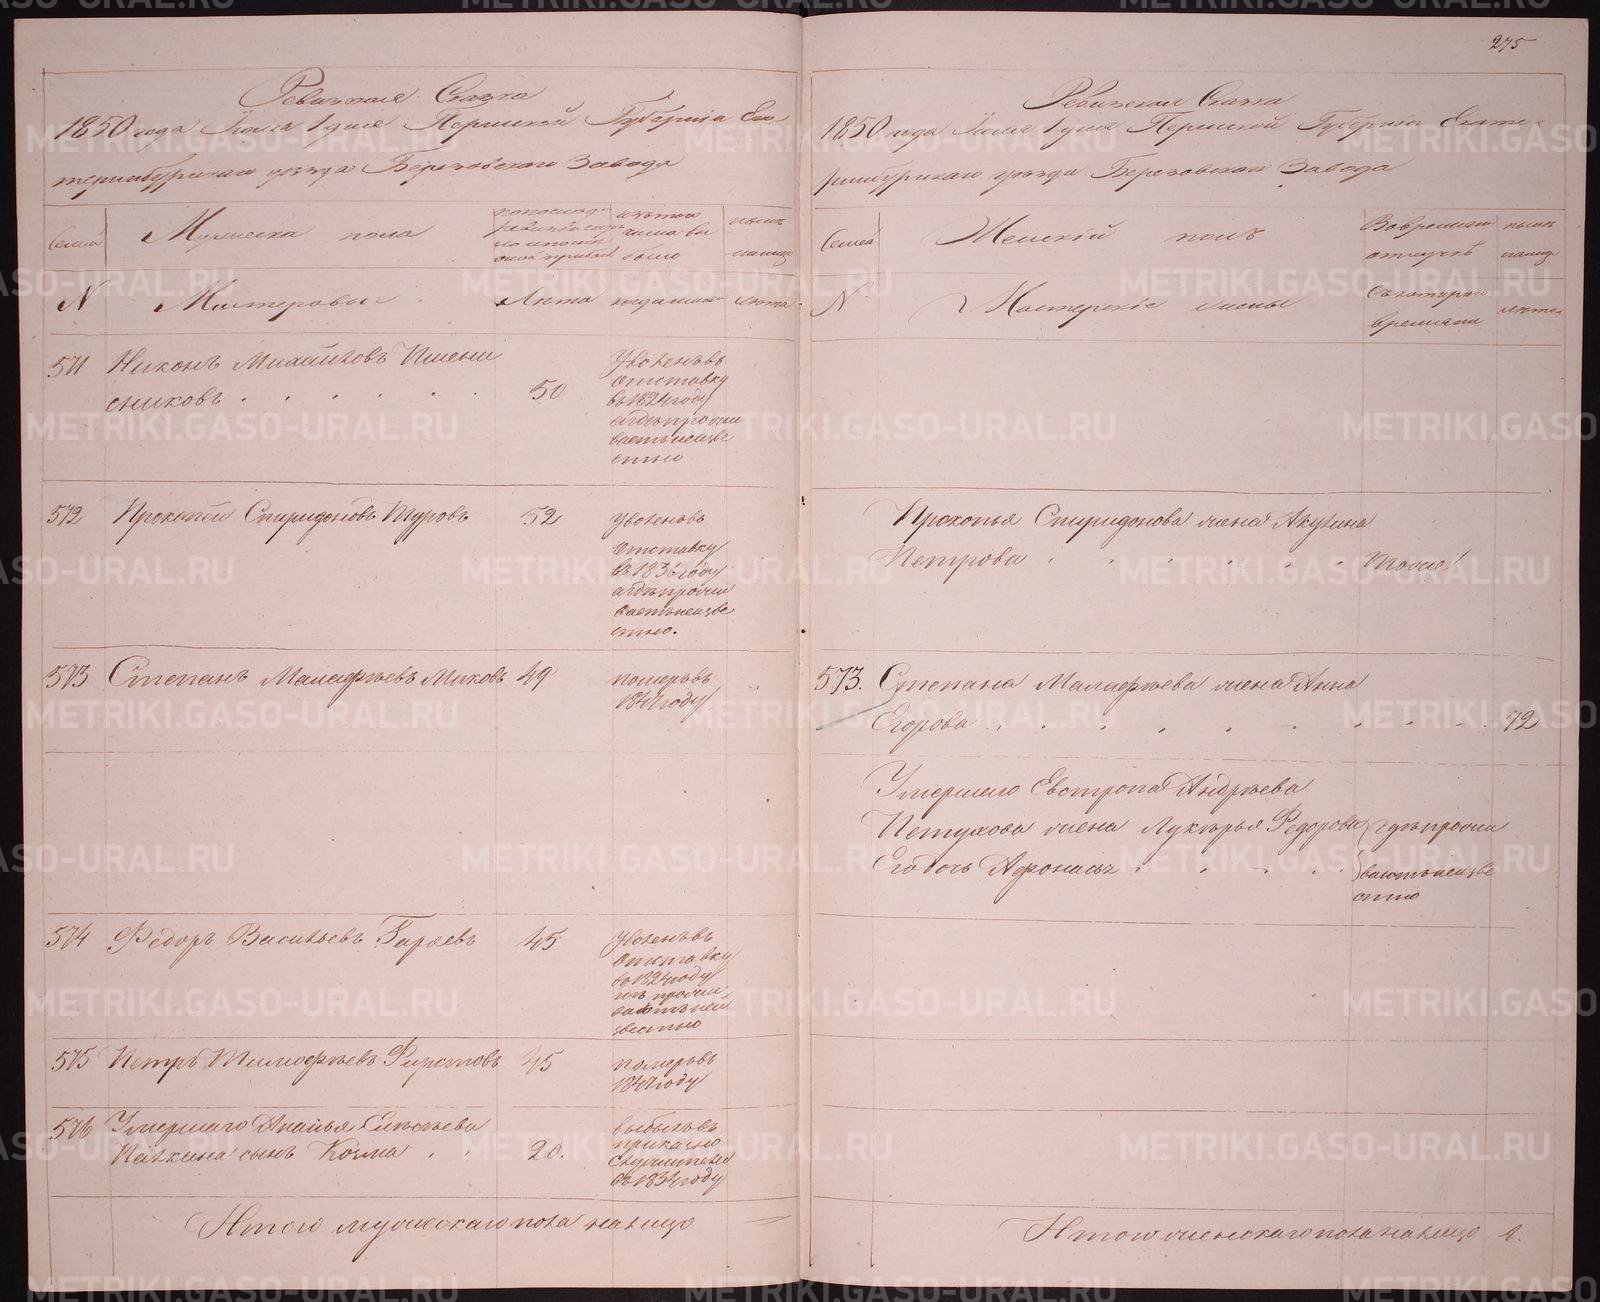 275
Ревизская Сказка
1850 года Июля 1 дня Пермской Губернiи Ека
теринбургскаго уѣзда Березовскаго Завода
Семей
Мужеска пола
изъ того
числа вы
было
нынѣ
налицо
N
Мастеровые
Лѣта
когда именно
Лѣта
571 Никонъ Михайловъ Пшени
сниковъ 50
Уволенъ въ
отставку
въ 1824 году
а гдѣ прожи
ваетъ неизве
стно
572 Прокопей Спиридоновъ Туровъ 52
Уволенъ въ
отставку
въ 1836 году
а гдѣ прожи
ваетъ неизве
стно.
573 Степанъ Малафѣевъ Миковъ 49
померъ въ
1847 году
574 Федоръ Васильевъ Гаряевъ 45
Уволенъ въ
отставку
въ 1824 году
гдѣ прожи
ваетъ неи
звестно
575 Петръ Тимофѣевъ Фирстовъ 45
померъ въ
1847 году
576 Умершаго Ананья Елисѣева
Палкина сынъ Козма 20.
выбылъ въ
приказно
служители
въ 1834 году
Итого мужескаго пола налицо
Ревизская Сказка
1850 года Июля 1 дня Пермской Губернiи Екате-
ринбургскаго уѣзда Березовскаго Завода
Семей
Женскiй полъ
Во временной
отлучкѣ
нынѣ
налицо
N
Мастерскiе жены
Съ котораго
времяни
Лѣта
Прокопья Спиридонова жена Акулина
Петрова тоже
573. Степана Малафѣева жена Анна
Егорова 72
Умершаго Евстропа Андрѣева
Петухова жена Лукерья Федорова гдѣ прожи
Его дочь Афонасья ваютъ неизве
стно
Итого женскаго пола налицо 1.
METRIKI.GASO-URAL.RU